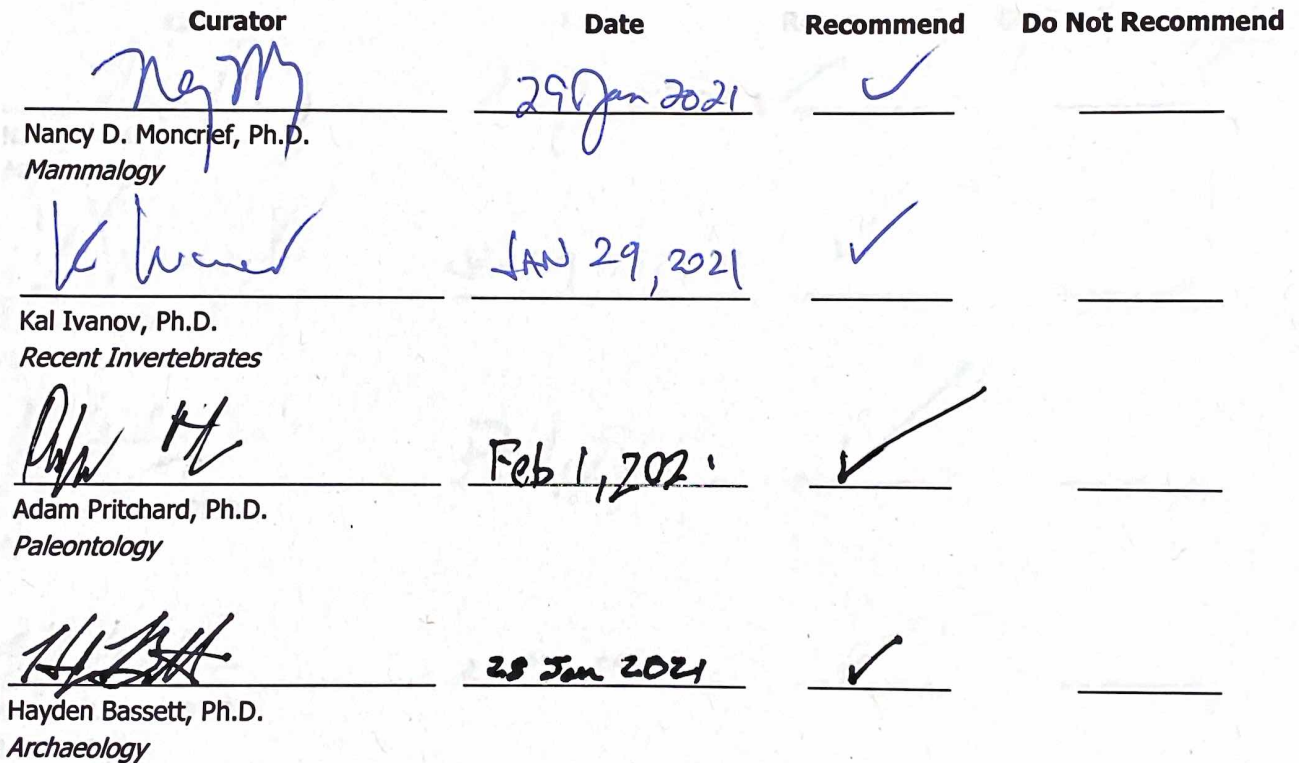 Curator Date Recommend Do Not Recommend
29 Jan 2021 ✓
Nancy D. Moncrief, Ph.D.
Mammalogy
JAN 29, 2021 ✓
Kal Ivanov, Ph.D.
Recent Invertebrates
Feb 1, 202 ✓
Adam Pritchard, Ph.D.
Paleontology
28 Jan 2021 ✓
Hayden Bassett, Ph.D.
Archaeology